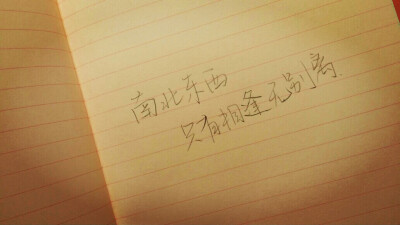 南北东西
只有相逢无别离.